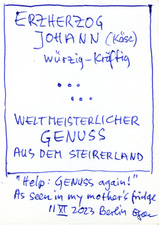 ERZHERZOG
JOHANN (Käse)
würzig-kräftig
WELTMEISTERLICHER
GENUSS
AUS DEM STEIRERLAND
"Help: GENUSS again!"
As seen in my mother's fridge
11 XI 2023 Berlin Egon